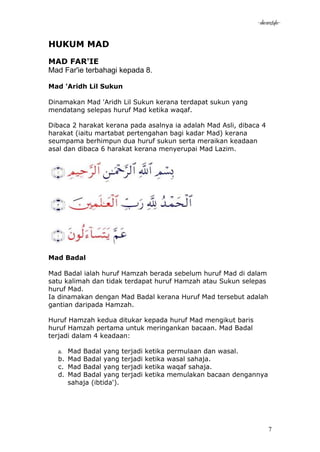 -alwanstyle-
HUKUM MAD
MAD FAR'IE
Mad Far'ie terbahagi kepada 8.
Mad 'Aridh Lil Sukun
Dinamakan Mad 'Aridh Lil Sukun kerana terdapat sukun yang
mendatang selepas huruf Mad ketika waqaf.
Dibaca 2 harakat kerana pada asalnya ia adalah Mad Asli, dibaca 4
harakat (iaitu martabat pertengahan bagi kadar Mad) kerana
seumpama berhimpun dua huruf sukun serta meraikan keadaan
asal dan dibaca 6 harakat kerana menyerupai Mad Lazim.
بِسْمِ ٱللَّهِ ٱلرَّحْمَـٰنِ ٱلرَّحِيمِ ١
ٱلْحَمْدُ لِلَّهِ رَبِّ ٱلْعَـٰلَمِينَ ٢
عَمَّ يَتَسَآءَلُونَ ١
Mad Badal
Mad Badal ialah huruf Hamzah berada sebelum huruf Mad di dalam
satu kalimah dan tidak terdapat huruf Hamzah atau Sukun selepas
huruf Mad.
Ia dinamakan dengan Mad Badal kerana Huruf Mad tersebut adalah
gantian daripada Hamzah.
Huruf Hamzah kedua ditukar kepada huruf Mad mengikut baris
huruf Hamzah pertama untuk meringankan bacaan. Mad Badal
terjadi dalam 4 keadaan:
a. Mad Badal yang terjadi ketika permulaan dan wasal.
b. Mad Badal yang terjadi ketika wasal sahaja.
c. Mad Badal yang terjadi ketika waqaf sahaja.
d. Mad Badal yang terjadi ketika memulakan bacaan dengannya
sahaja (ibtida').
7